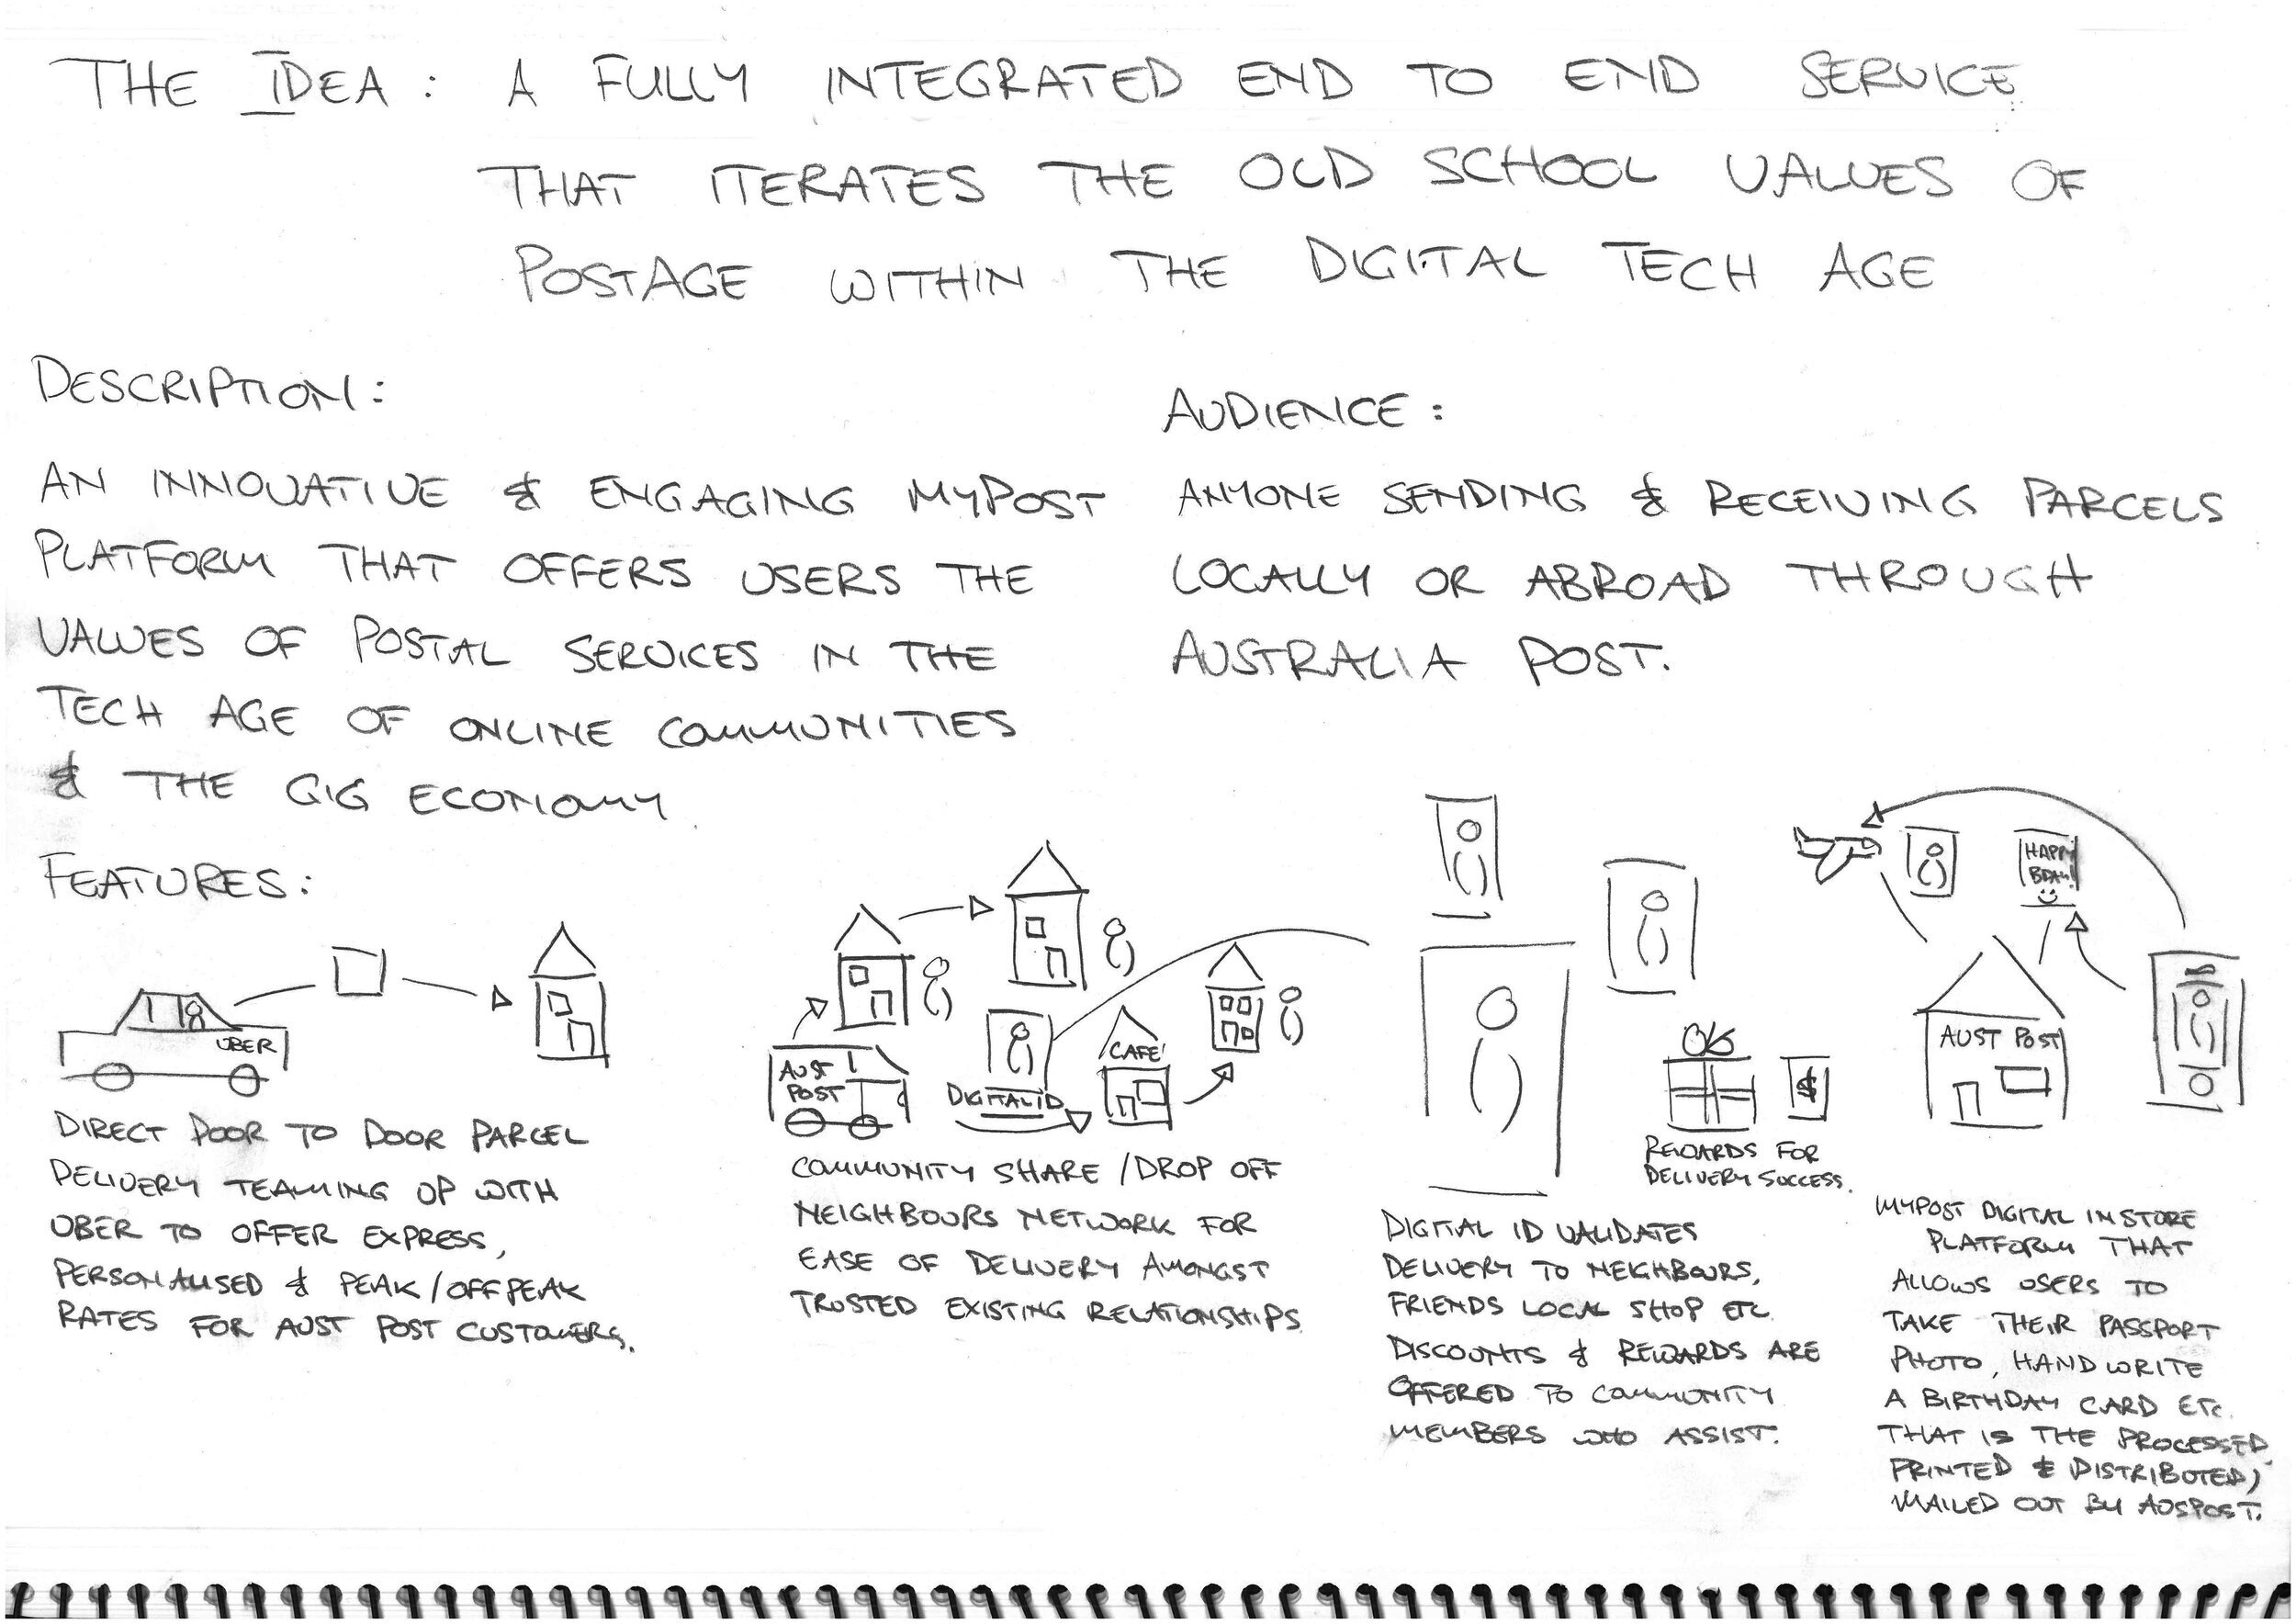 THE IDEA : A FULLY INTEGRATED END TO END SERVICE
THAT ITERATES THE OLD SCHOOL VALUES OF
POSTAGE WITHIN THE DIGITAL TECH AGE
DESCRIPTION :
AN INNOVATIVE & ENGAGING MYPOST
PLATFORM THAT OFFERS USERS THE
VALUES OF POSTAL SERVICES IN THE
TECH AGE OF ONLINE COMMUNITIES
& THE GIG ECONOMY.
AUDIENCE :
ANYONE SENDING & RECEIVING PARCELS
LOCALLY OR ABROAD THROUGH
AUSTRALIA POST.
FEATURES :
UBER
DIRECT DOOR TO DOOR PARCEL
DELIVERY TEAMING UP WITH
UBER TO OFFER EXPRESS,
PERSONALISED & PEAK/OFFPEAK
RATES FOR AUST POST CUSTOMERS.
AUST
POST
DIGITAL ID
CAFE
COMMUNITY SHARE /DROP OFF
NEIGHBOURS NETWORK FOR
EASE OF DELIVERY AMONGST
TRUSTED EXISTING RELATIONSHIPS
$
REWARDS FOR
DELIVERY SUCCESS.
DIGITAL ID VALIDATES
DELIVERY TO NEIGHBOURS,
FRIENDS LOCAL SHOP ETC
DISCOUNTS & REWARDS ARE
OFFERED TO COMMUNITY
MEMBERS WHO ASSIST.
HAPPY
BDAY!
AUST POST
MYPOST DIGITAL INSTORE
PLATFORM THAT
ALLOWS USERS TO
TAKE THEIR PASSPORT
PHOTO, HANDWRITE
A BIRTHDAY CARD ETC.
THAT IS THE PROCESSED,
PRINTED & DISTRIBUTED/
MAILED OUT BY AUSPOST.